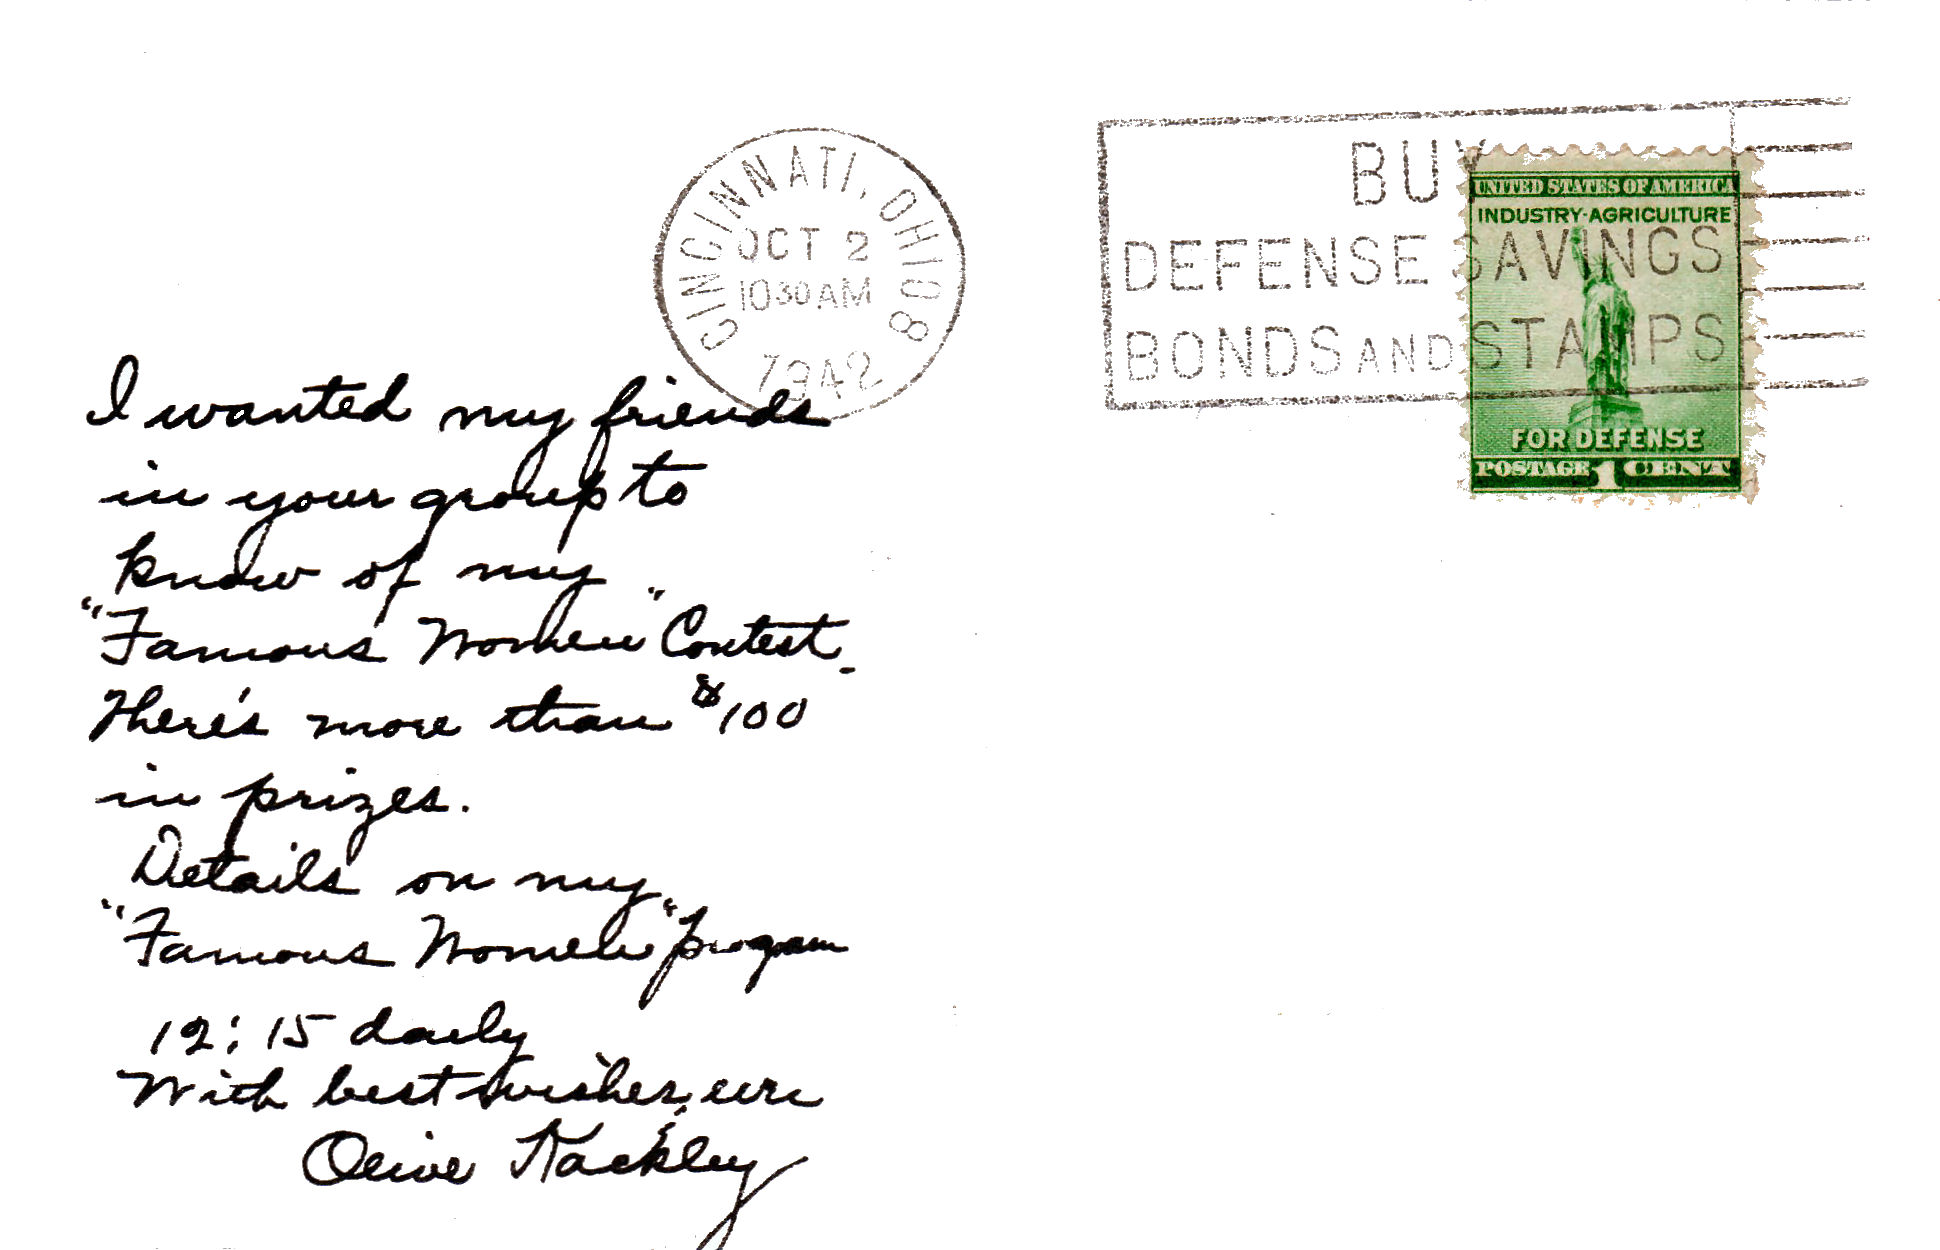 CINCINNATI, OHIO 8
OCT 2
1030 AM
1942
BUY
DEFENSE SAVINGS
BONDS AND STAMPS
UNITED STATES OF AMERICA
INDUSTRY-AGRICULTURE
FOR DEFENSE
POSTAGE 1 CENT
I wanted my friends
in your group to
know of my
"Famous Women" Contest.
There's more than $100
in prizes.
Details on my
"Famous Women" program
12:15 daily
With best wishes,
Olive Kackley